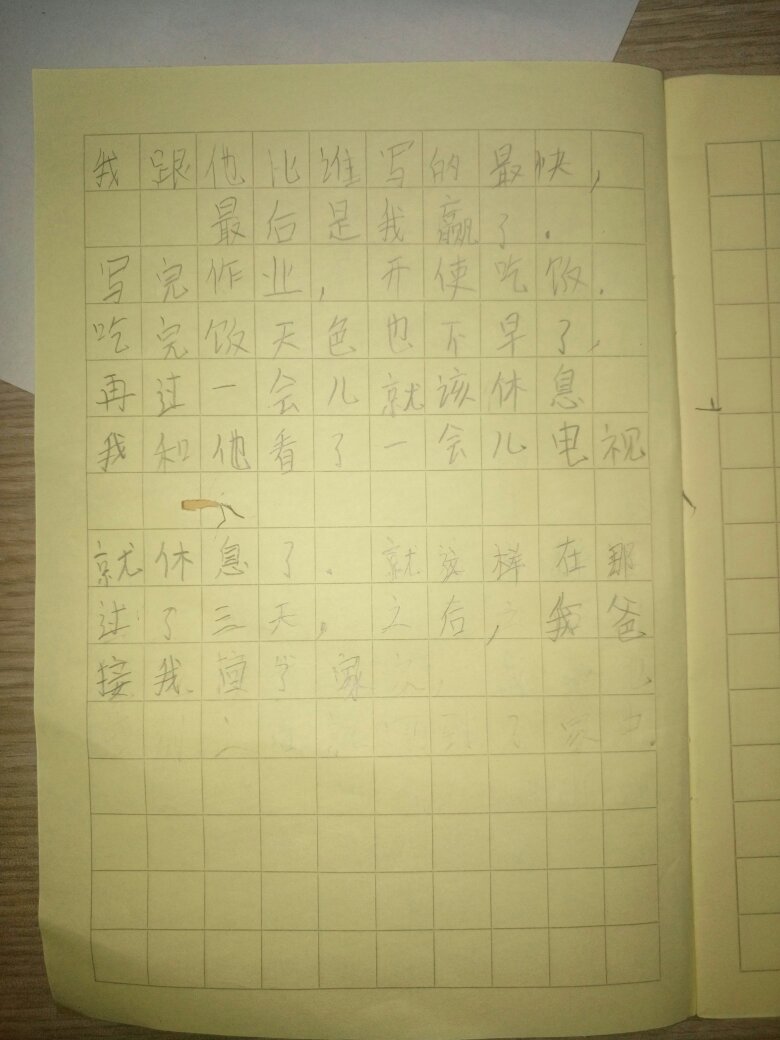 我跟他比谁写的最快，
最后是我赢了．
写完作业，开使吃饭．
吃完饭天色也不早了，
再过一会儿就该休息
我和他看了一会儿电视
就休息了．就这样在那
过了三天，之后，我爸
接我 家
到了家中